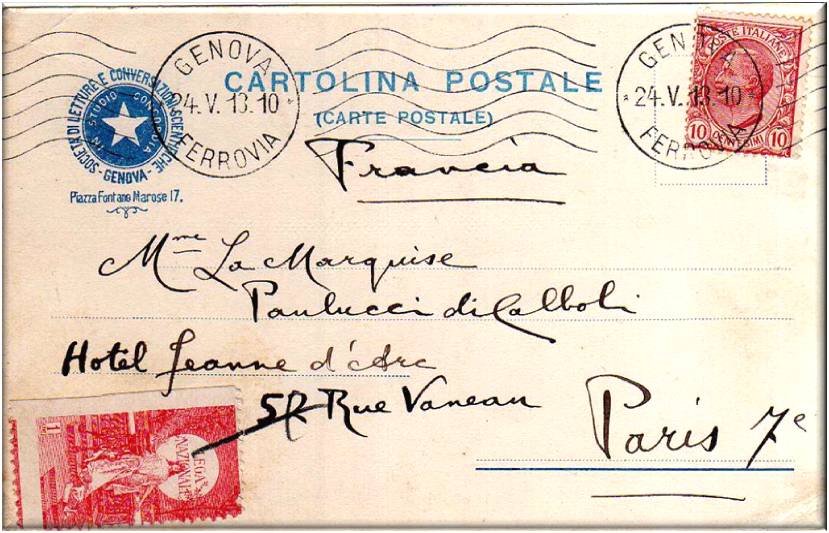 GENOVA
24.V.13.10
FERROVIA
CARTOLINA POSTALE
(CARTE POSTALE)
GENOVA
24.V.13-10
FERROVIA
POSTE ITALIANE
10 CENTESIMI 10
SOCIETÀ DI LETTURE E CONVERSAZIONI SCIENTIFICHE
- GENOVA -
STUDIO CONCORDIA
Piazza Fontane Marose 17.
Francia
Mme La Marquise
Paulucci di Calboli
Hotel Jeanne d'Arc
Rue Vaneau
Paris 7e
1
LEGA
NAZIONALE